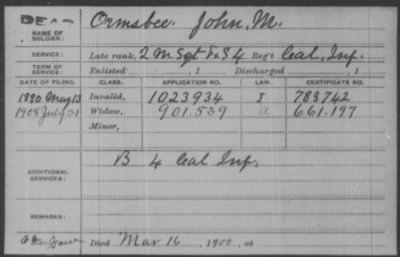 DEAD
NAME OF SOLDIER: Ormsbee, John, M.
SERVICE: Late rank, 2 M Sgt F&S 4 Reg't Cal, Inf.
TERM OF SERVICE: Enlisted , 1 Discharged , 1
DATE OF FILING. CLASS. APPLICATION NO. LAW. CERTIFICATE NO.
1890 May 13 Invalid, 1023934 I 783742
1908 July 31 Widow, 901.539 661.197
Minor,
ADDITIONAL SERVICES: B 4 Cal Inf.
REMARKS:
Died Mar 16, 1900, at